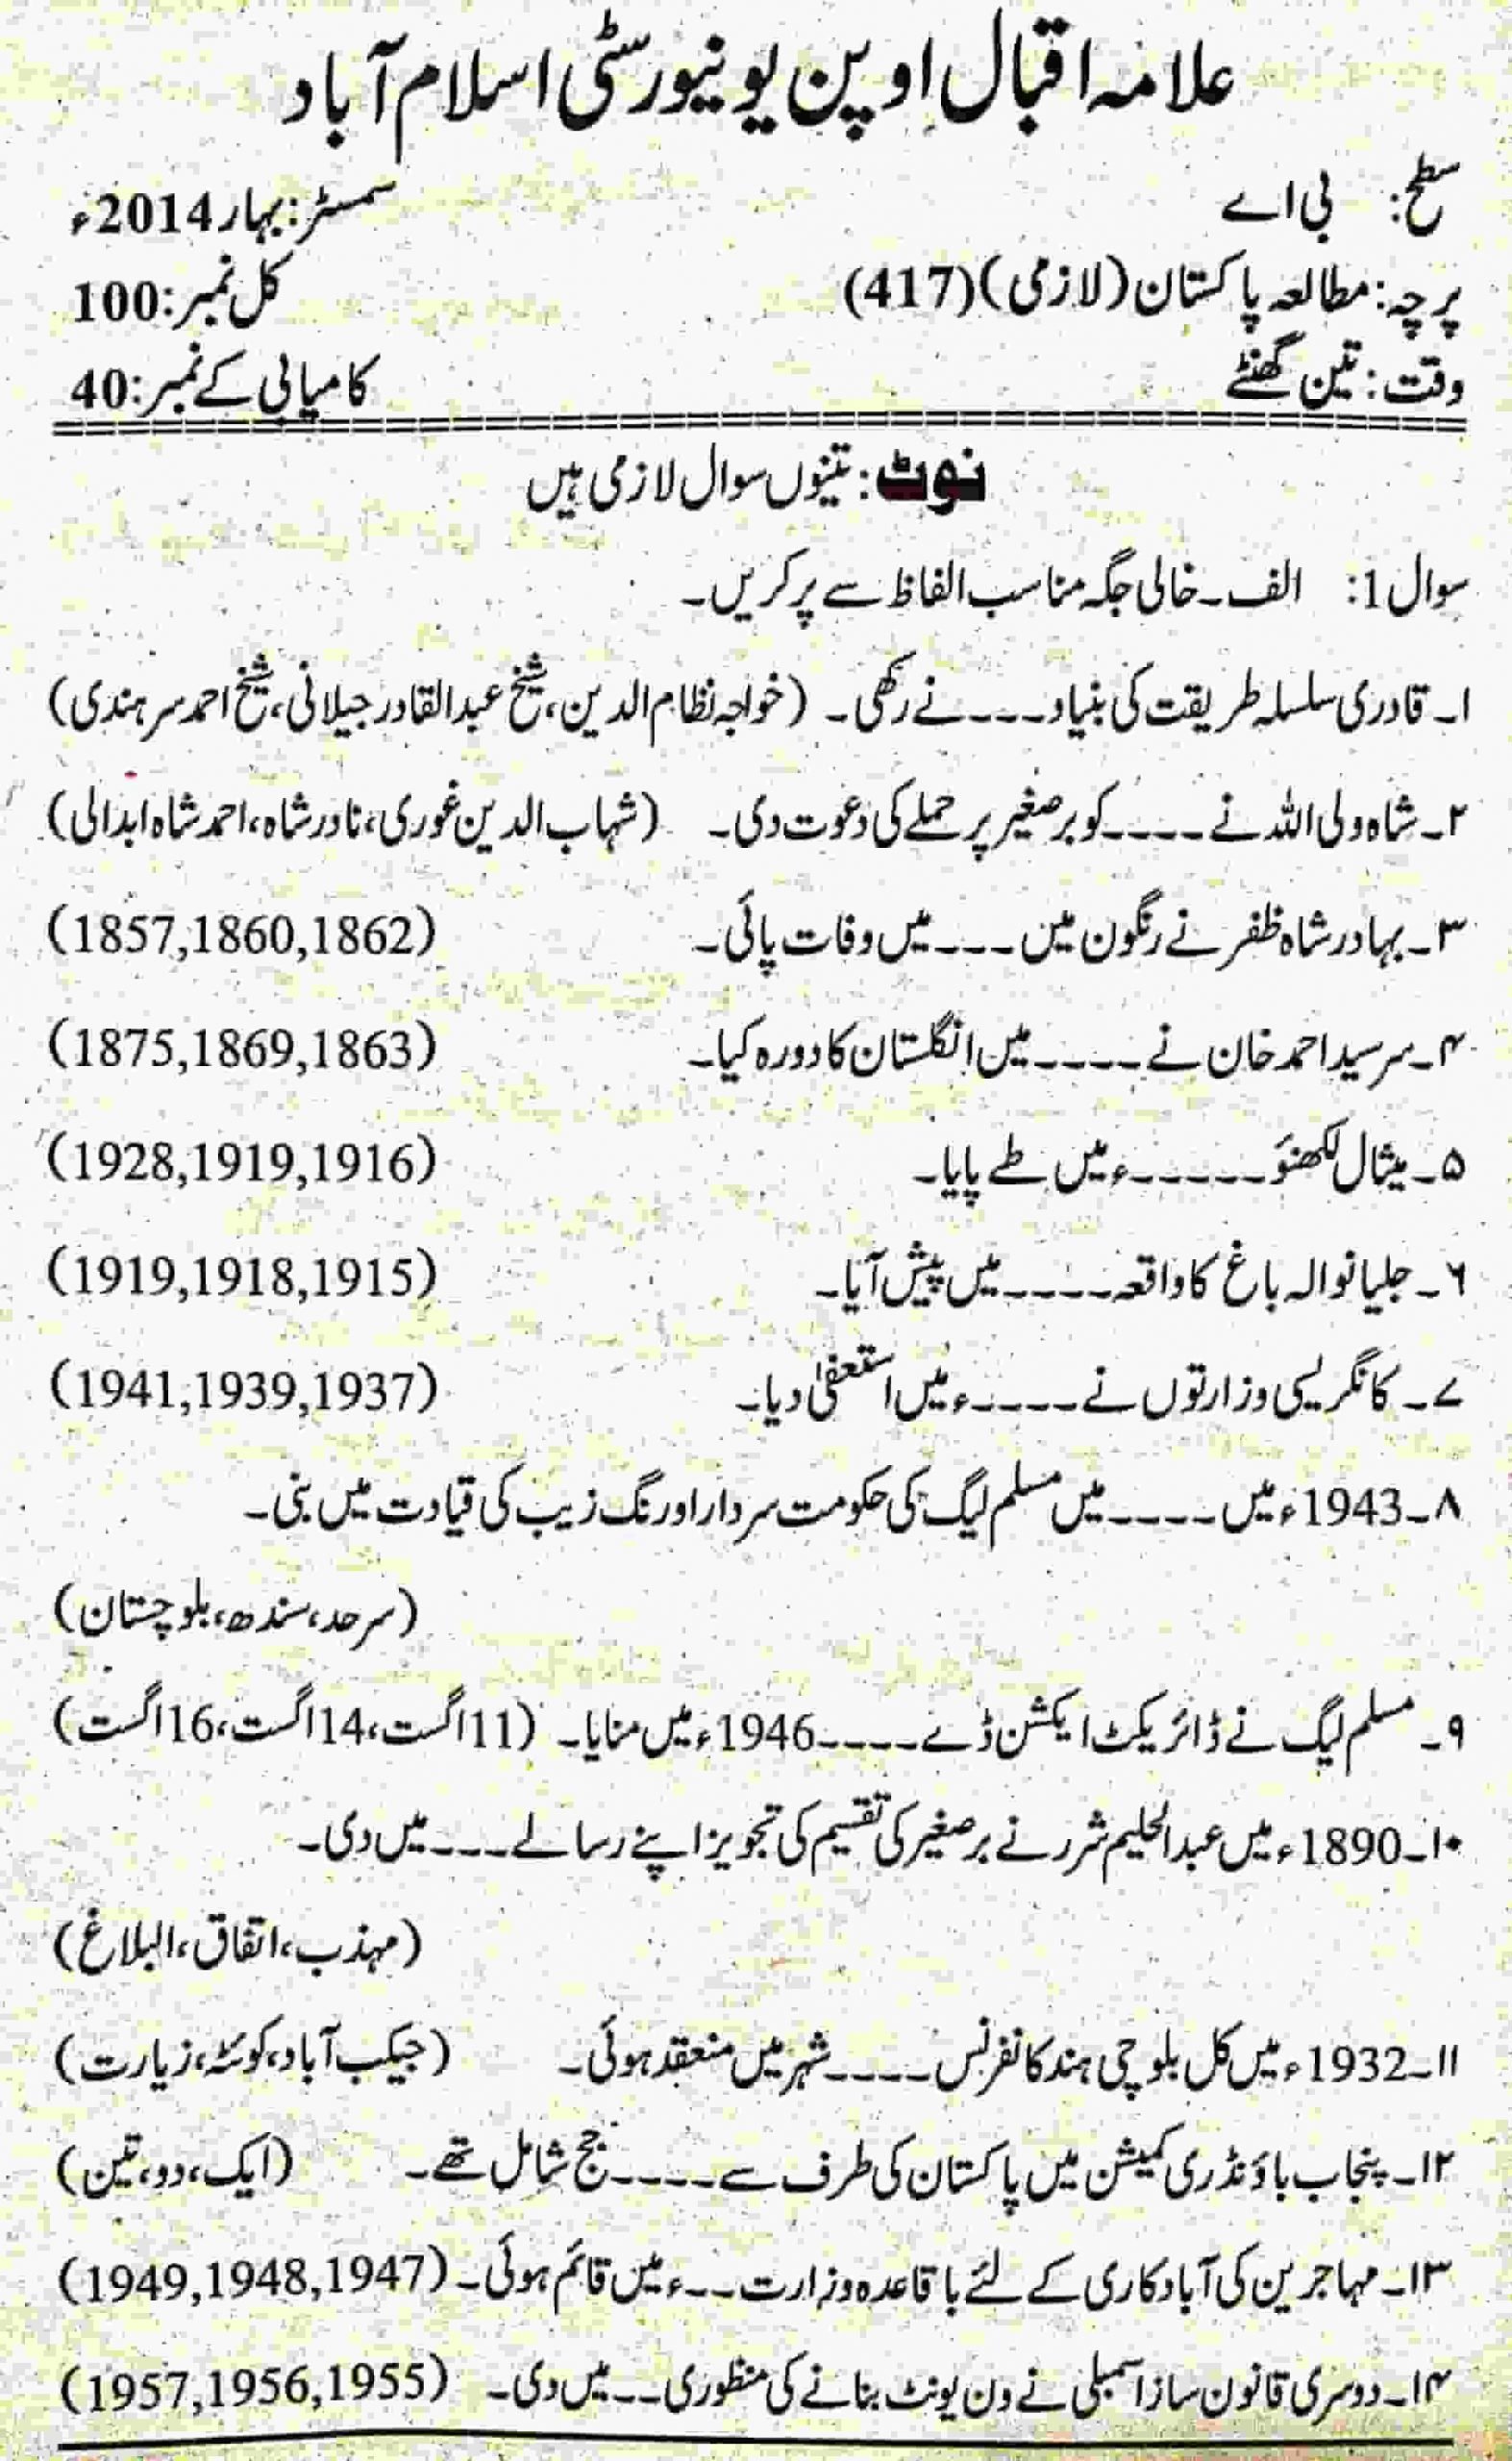 علامہ اقبال اوپن یونیورسٹی اسلام آباد
سطح: بی اے سمسٹر: بہار 2014ء
پرچہ: مطالعہ پاکستان (لازمی) (417) کل نمبر: 100
وقت: تین گھنٹے کامیابی کے نمبر: 40
نوٹ: تینوں سوال لازمی ہیں
سوال 1: الف۔ خالی جگہ مناسب الفاظ سے پر کریں۔
۱۔ قادری سلسلہ طریقت کی بنیاد۔۔۔۔ نے رکھی۔ (خواجہ نظام الدین، شیخ عبدالقادر جیلانی، شیخ احمد سرہندی)
۲۔ شاہ ولی اللہ نے ۔۔۔۔ کو برصغیر پر حملے کی دعوت دی۔ (شہاب الدین غوری، نادر شاہ، احمد شاہ ابدالی)
۳۔ بہادر شاہ ظفر نے رنگون میں ۔۔۔ میں وفات پائی۔ (1857,1860,1862)
۴۔ سرسید احمد خان نے ۔۔۔۔ میں انگلستان کا دورہ کیا۔ (1875,1869,1863)
۵۔ میثاق لکھنؤ ۔۔۔۔۔ء میں طے پایا۔ (1928,1919,1916)
۶۔ جلیانوالہ باغ کا واقعہ ۔۔۔۔ میں پیش آیا۔ (1919,1918,1915)
۷۔ کانگریسی وزارتوں نے ۔۔۔۔ء میں استعفیٰ دیا۔ (1941,1939,1937)
۸۔ 1943ء میں ۔۔۔۔ میں مسلم لیگ کی حکومت سردار اورنگ زیب کی قیادت میں بنی۔
(سرحد، سندھ، بلوچستان)
۹۔ مسلم لیگ نے ڈائریکٹ ایکشن ڈے ۔۔۔۔ 1946ء میں منایا۔ (11 اگست، 14 اگست، 16 اگست)
۱۰۔ 1890ء میں عبدالحلیم شرر نے برصغیر کی تقسیم کی تجویز اپنے رسالے ۔۔۔ میں دی۔
(مہذب، اتفاق، البلاغ)
۱۱۔ 1932ء میں کل بلوچی ہند کانفرنس ۔۔۔۔ شہر میں منعقد ہوئی۔ (جیکب آباد، کوئٹہ، زیارت)
۱۲۔ پنجاب باؤنڈری کمیشن میں پاکستان کی طرف سے ۔۔۔۔ جج شامل تھے۔ (ایک، دو، تین)
۱۳۔ مہاجرین کی آبادکاری کے لئے باقاعدہ وزارت ۔۔ء میں قائم ہوئی۔ (1949,1948,1947)
۱۴۔ دوسری قانون ساز اسمبلی نے ون یونٹ بنانے کی منظوری ۔۔ میں دی۔ (1957,1956,1955)